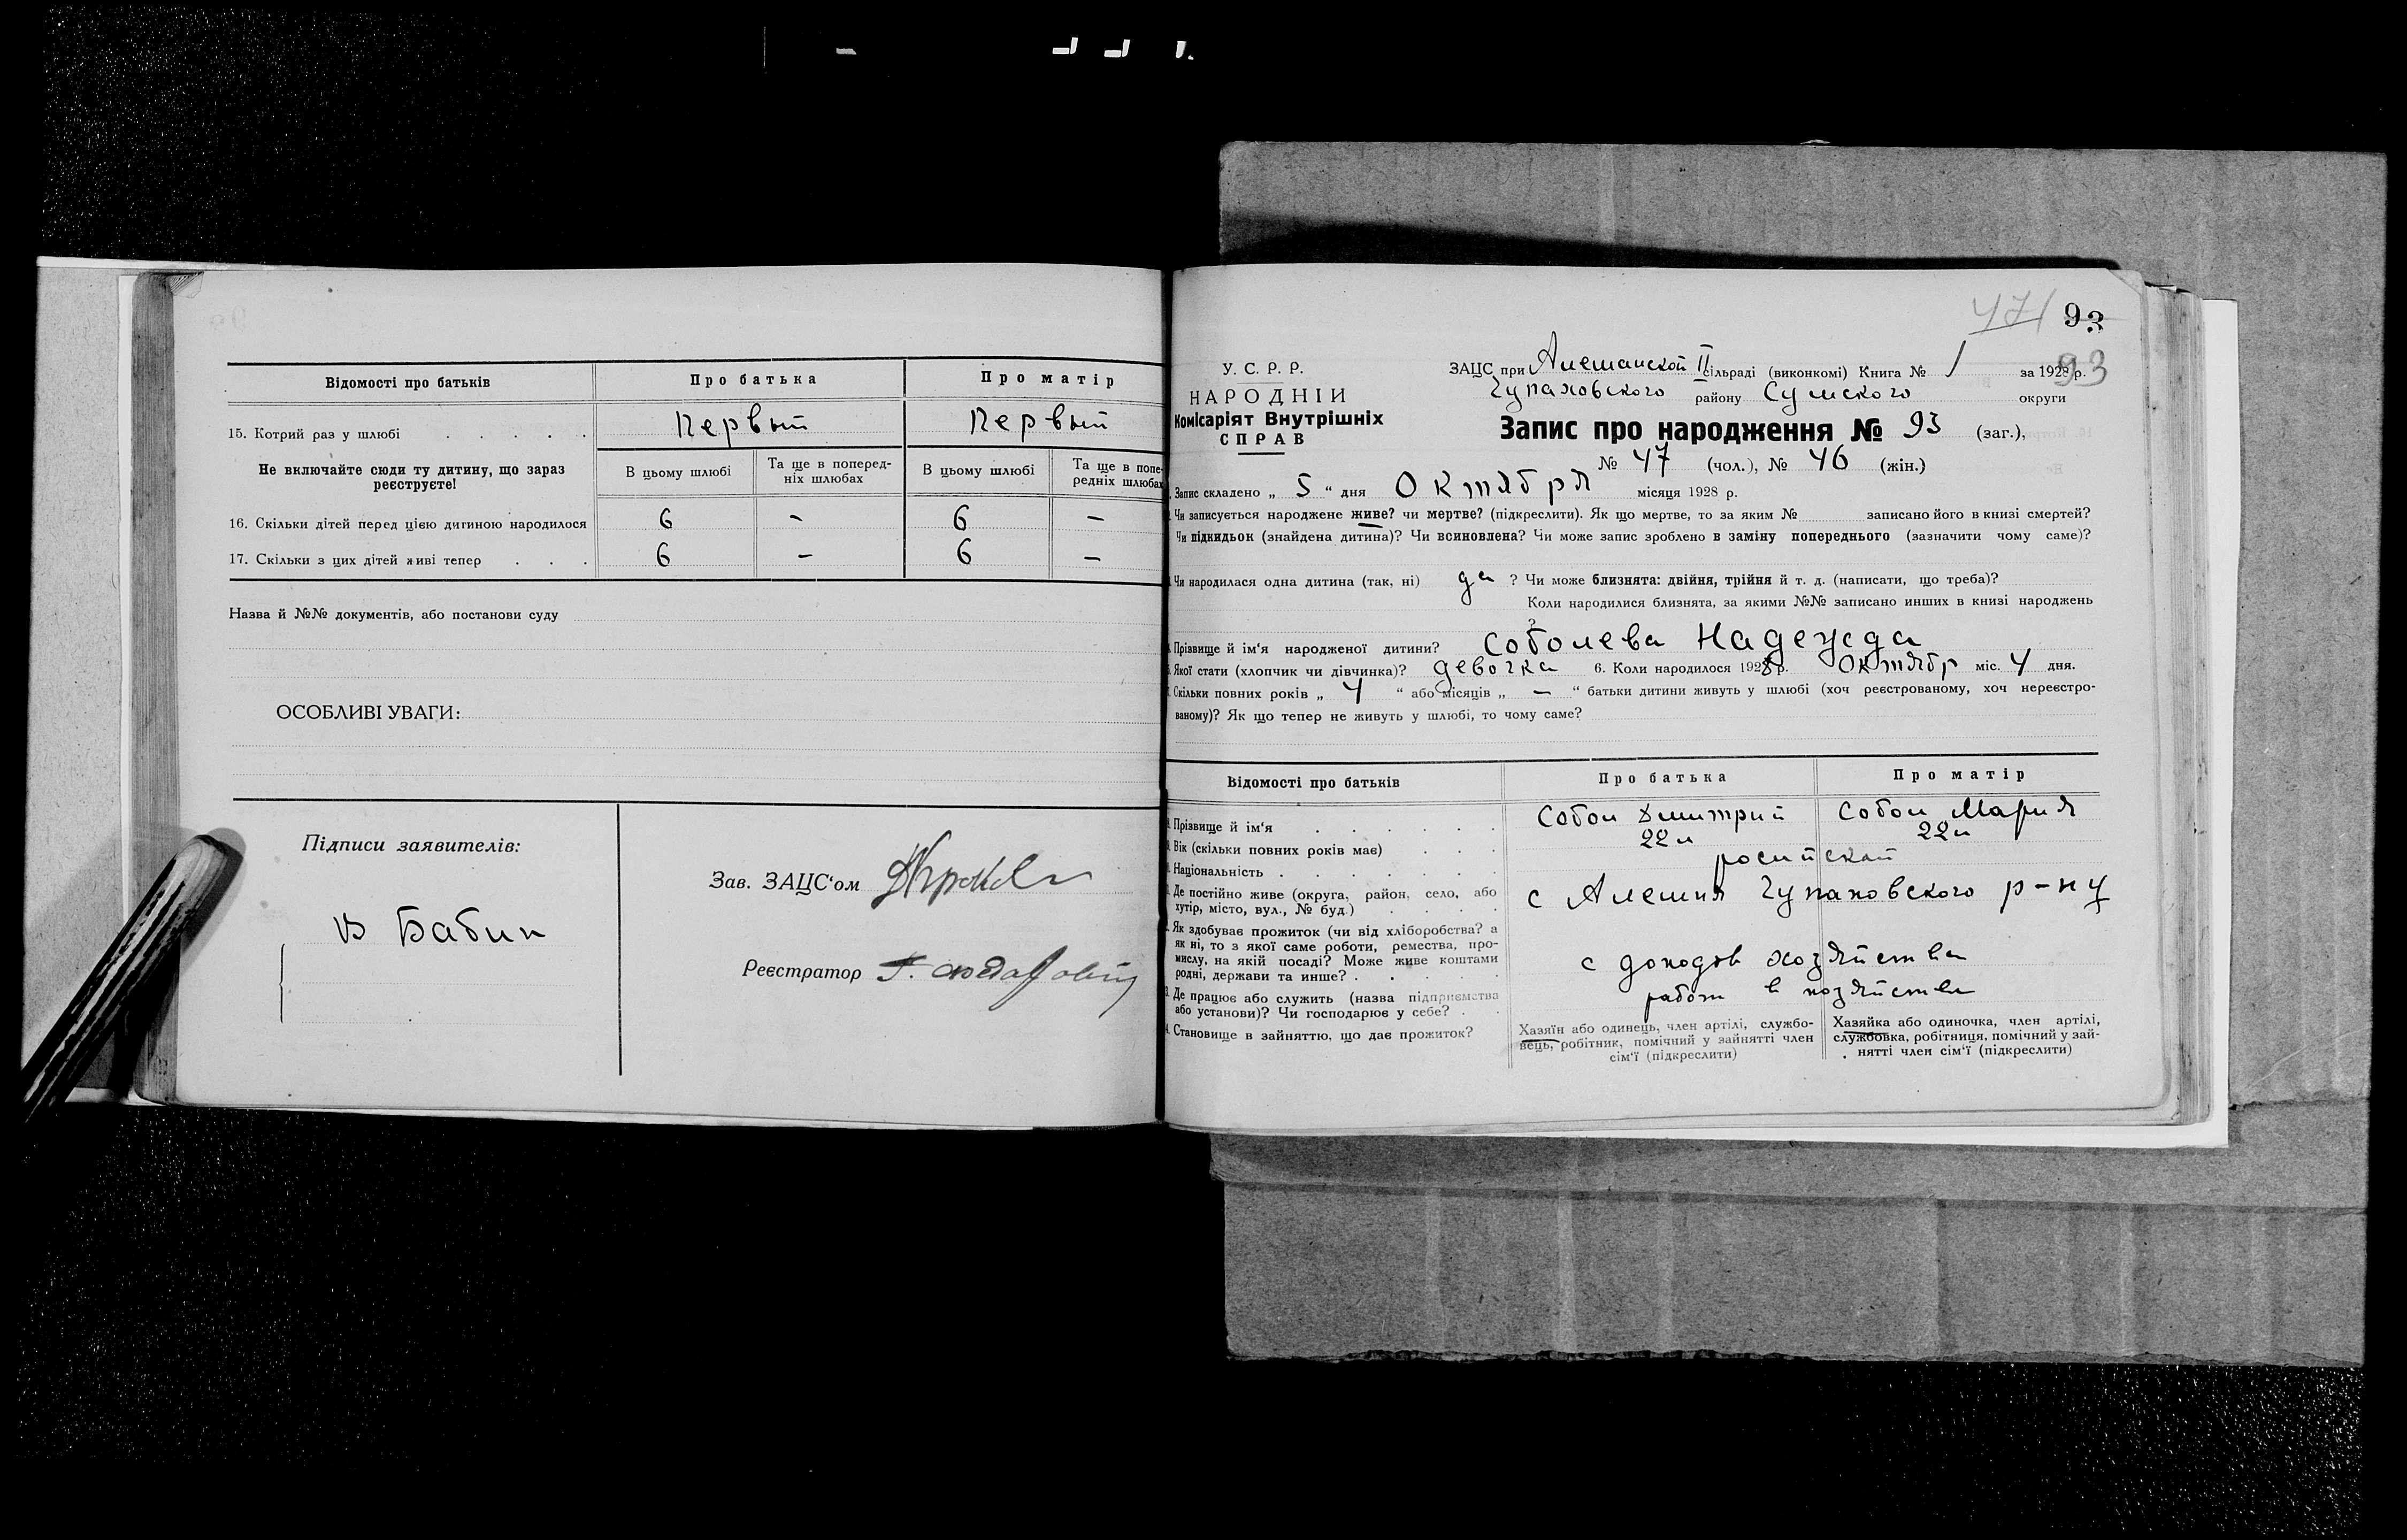 Відомості про батьків
Про батька
Про матір
15. Котрий раз у шлюбі
Первый
Первый
Не включайте сюди ту дитину, що зараз реєструєте!
В цьому шлюбі
Та ще в поперед-
ніх шлюбах
В цьому шлюбі
Та ще в попе-
редніх шлюбах
16. Скільки дітей перед цією дитиною народилося
6 – 6 –
17. Скільки з цих дітей живі тепер
6 – 6 –
Назва й №№ документів, або постанови суду
ОСОБЛИВІ УВАГИ:
Підписи заявителів:
В Бабич
Зав. ЗАЦС'ом
Реєстратор
471 93
93
У. С. Р. Р.
НАРОДНІЙ
Комісаріят Внутрішніх
СПРАВ
ЗАЦС при Алешанской II сільраді (виконкомі) Книга № 1 за 1928 р.
Чупаховского району Сумского округи
Запис про народження № 93 (заг.),
№ 47 (чол.), № 46 (жін.)
Запис складено „ 5 “ дня Октября місяця 1928 р.
Чи записується народжене живе? чи мертве? (підкреслити). Як що мертве, то за яким № записано його в книзі смертей?
Чи підкидьок (знайдена дитина)? Чи всиновлена? Чи може запис зроблено в заміну попереднього (зазначити чому саме)?
Чи народилася одна дитина (так, ні) да ? Чи може близнята: двійня, трійня й т. д. (написати, що треба)?
Коли народилися близнята, за якими №№ записано инших в книзі народжень
?
Прізвище й ім'я народженої дитини? Соболева Надежда
Якої стати (хлопчик чи дівчинка)? девочка 6. Коли народилося 1928 р. Октябр міс. 4 дня.
Скільки повних років „ 4 “ або місяців „ – “ батьки дитини живуть у шлюбі (хоч реєстрованому, хоч нереєстро-
ваному)? Як що тепер не живуть у шлюбі, то чому саме?
Відомості про батьків
Про батька
Про матір
Прізвище й ім'я
Собол Дмитрий
Собол Мария
Вік (скільки повних років має)
22 л
22 л
Національність
росийской
Де постійно живе (округа, район, село, або
хутір, місто, вул., № буд.)
с Алешня Чупаховского р-ну
Як здобуває прожиток (чи від хліборобства? а
як ні, то з якої саме роботи, ремества, про-
мислу, на якій посаді? Може живе коштами
родні, держави та инше?
с доходов хозяйства
Де працює або служить (назва підприємства
або установи)? Чи господарює у себе?
работ в хозяйстве
Становище в зайняттю, що дає прожиток?
Хазяїн або одинець, член артілі, службо-
вець, робітник, помічний у зайнятті член
сім'ї (підкреслити)
Хазяйка або одиночка, член артілі,
службовка, робітниця, помічний у зай-
нятті член сім'ї (підкреслити)